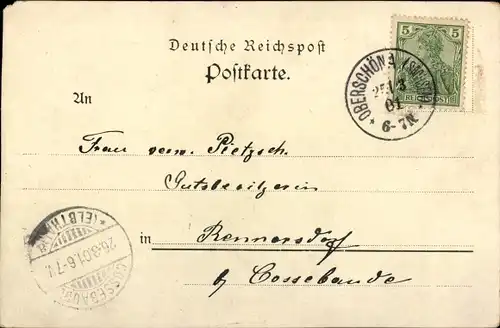 5
REICHSPOST
OBERSCHÖNA
25/3
01
* 6-7N
Deutsche Reichspost
Postkarte.
An
Frau verw. Pietzsch.
Gutsbesitzerin
in Rennersdorf
b/ Cossebaude
* (ELBTHAL)
26.3.01.6-7V
COSSEBAUDE